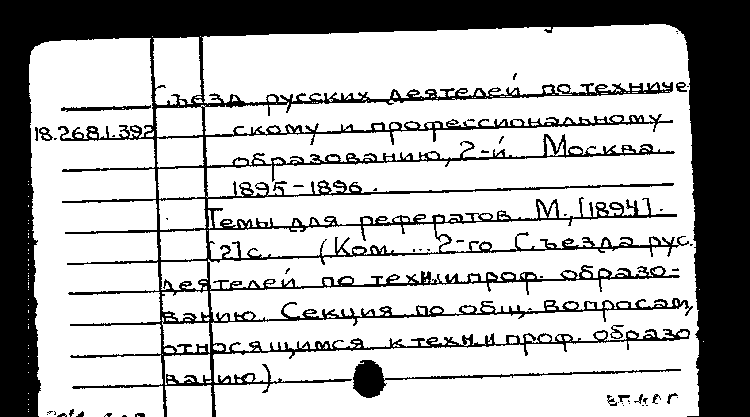 Съезд русских деятелей по техниче
18.268.1.392 скому и профессиональному
образованию, 2-й. Москва.
1895-1896.
Темы для рефератов. М., [1894].
[2] с. (Ком. ... 2-го Съезда рус.
деятелей по техн. и проф. образо-
ванию. Секция по общ. вопросам,
относящимся к техн. и проф. образо
ванию).